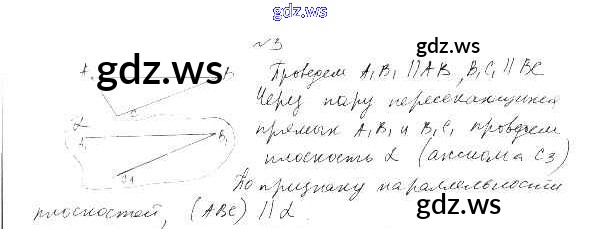 gdz.ws
№3
A
B
C
gdz.ws
Проведем A₁B₁ || AB, B₁C₁ || BC
Через пару пересекающихся
прямых A₁B₁ и B₁C₁ проведем
плоскость α (аксиома C₃)
По признаку параллельности
плоскостей, (ABC) || α.
α
A₁
B₁
C₁
gdz.ws